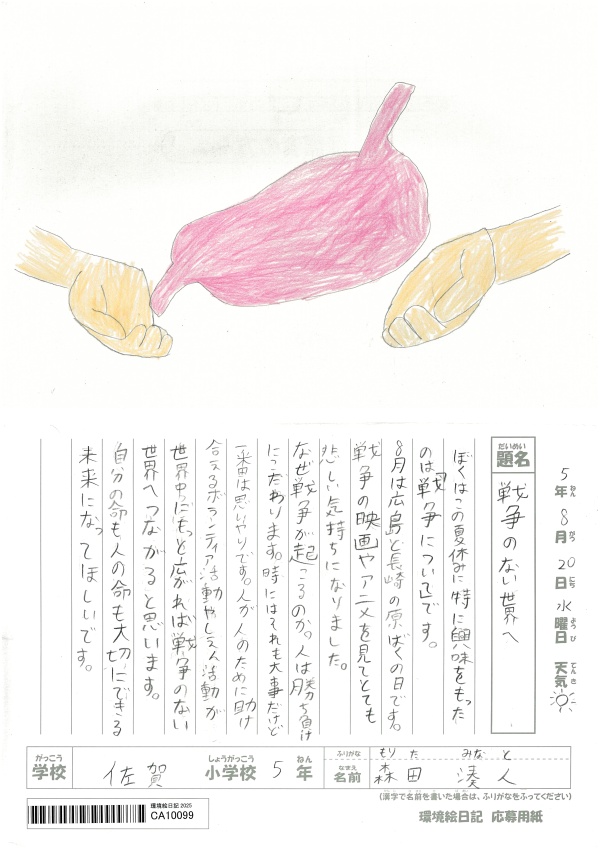 5年 8月 20日 水曜日 天気
ねん がつ にち ようび てんき
だいめい
題名 戦争のない世界へ
ぼくはこの夏休みに特に興味をもった
のは「戦争について」です。
8月は広島と長崎の原ばくの日です。
戦争の映画やアニメを見てとても
悲しい気持ちになりました。
なぜ戦争が起こるのか。人は勝ち負け
にこだわります。時にはそれも大事だけど
一番は思いやりです。人が人のために助け
合えるボランティア活動やしえん活動が
世界中にもっと広がれば戦争のない
世界へつながると思います。
自分の命も人の命も大切にできる
未来になってほしいです。
がっこう しょうがっこう ねん
学校 佐賀 小学校 5年
ふりがな もりた みなと
なまえ
名前 森田 湊人
(漢字で名前を書いた場合は、ふりがなをふってください)
環境絵日記 応募用紙
環境絵日記 2025
CA10099